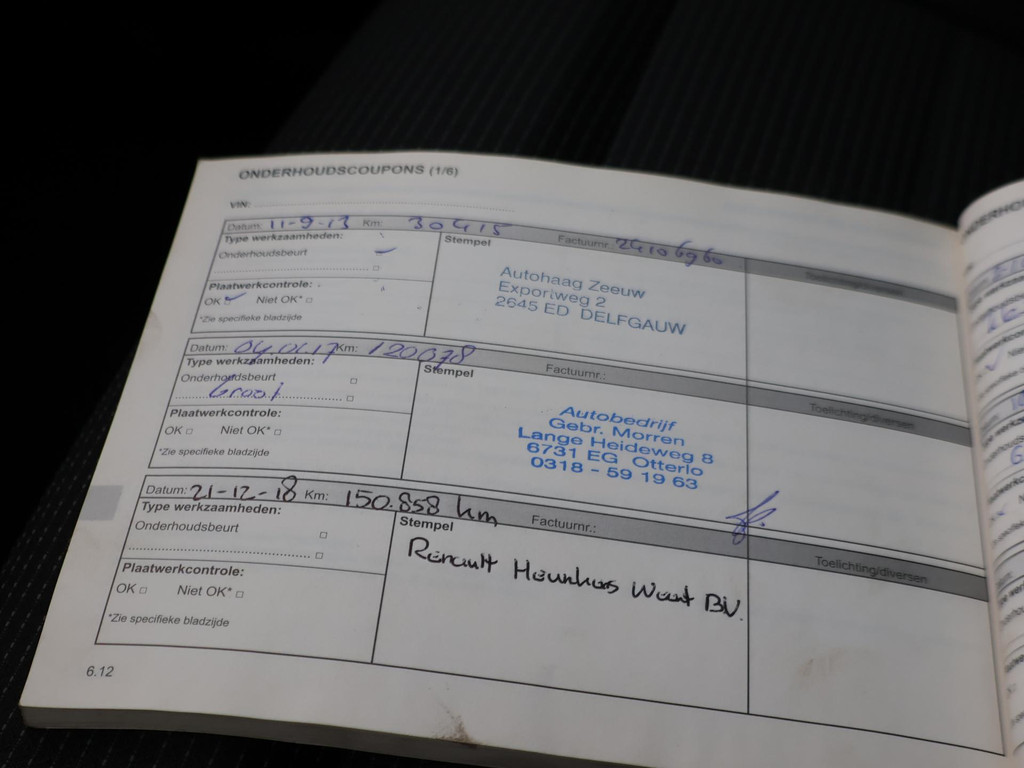 ONDERHOUDSCOUPONS (1/6)
VIN:
Datum: 11-9-13 Km: 30415 Factuurnr.: 24106960
Type werkzaamheden: Stempel Toelichting/diversen
Onderhoudsbeurt
Plaatwerkcontrole:
OK Niet OK*
*Zie specifieke bladzijde
Autohaag Zeeuw
Exportweg 2
2645 ED DELFGAUW
Datum: 04.01.17 Km: 120078 Factuurnr.:
Type werkzaamheden: Stempel Toelichting/diversen
Onderhoudsbeurt
Groot
Plaatwerkcontrole:
OK Niet OK*
*Zie specifieke bladzijde
Autobedrijf
Gebr. Morren
Lange Heideweg 8
6731 EG Otterlo
0318 - 59 19 63
Datum: 21-12-18 Km: 150.858 km Factuurnr.:
Type werkzaamheden: Stempel Toelichting/diversen
Onderhoudsbeurt
Plaatwerkcontrole:
OK Niet OK*
*Zie specifieke bladzijde
Renault BV.
6.12